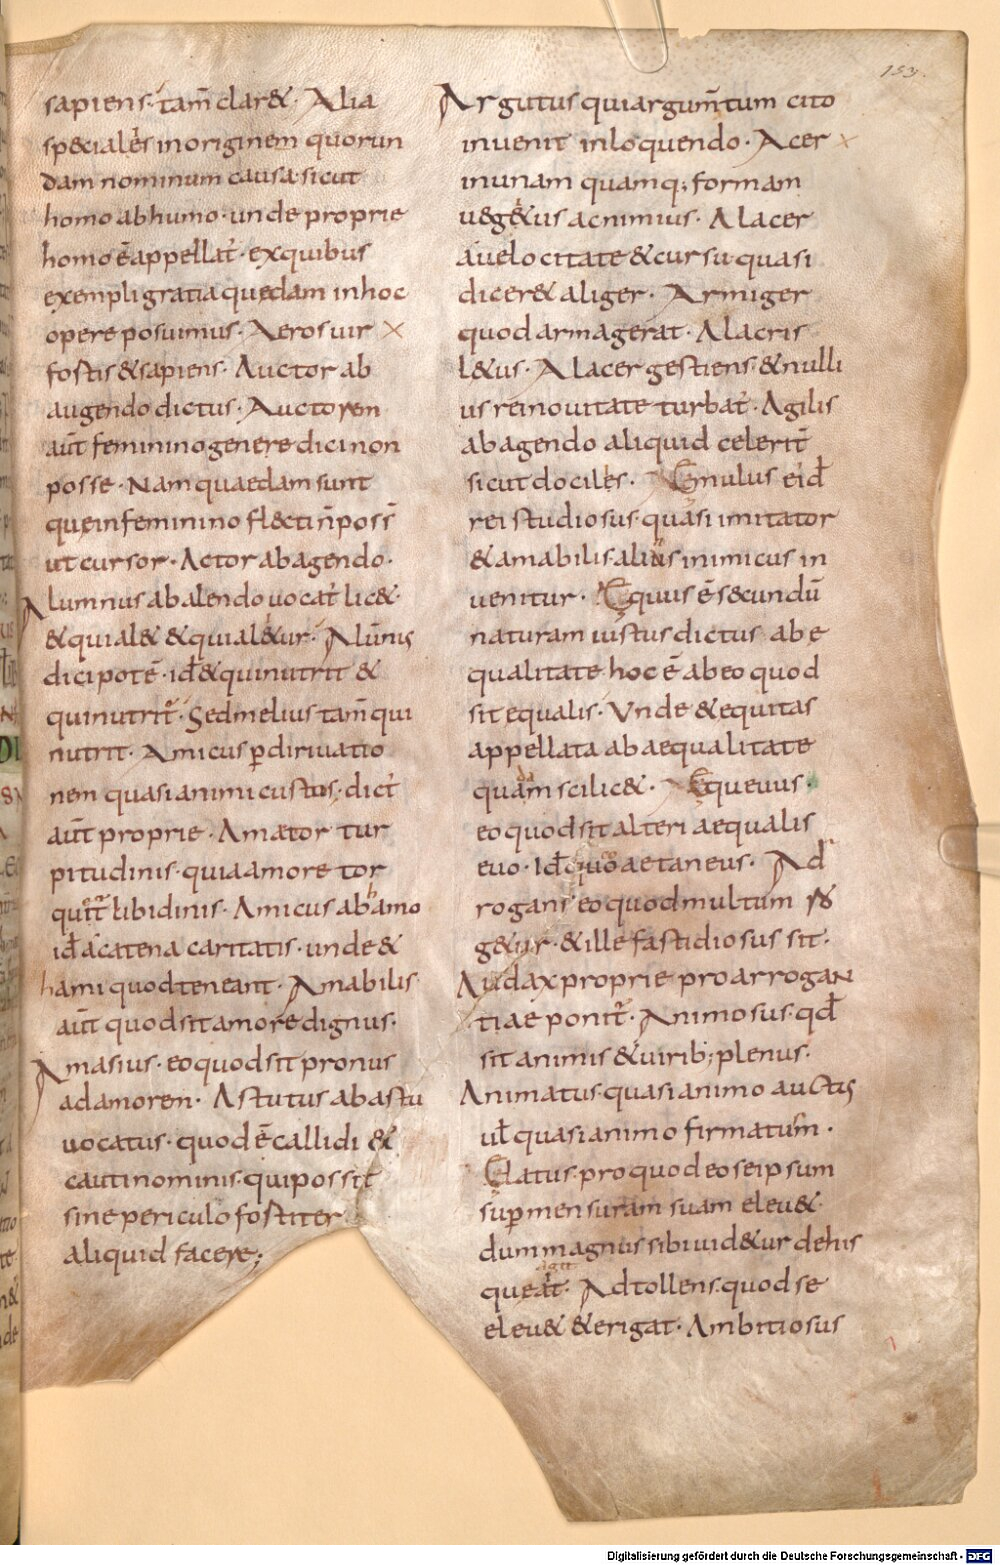 153.
sapiens. tam̄ clar&. Alia
sp&ciales inoriginem quorun
dam nominum causa. sicut
homo abhumo. unde proprie
homo ē appellat̄. exquibus
exempli gratia quędam inhoc
opere posuimus. Aeros uir ×
fostis & sapiens. Auctor ab
augendo dictus. Auctorem
aūt feminino genere dici non
posse. Nam quaedam sunt
quę infeminino fl&cti n̄ poss̄
ut cursor. Actor abagendo.
Alumnus abalendo uocat̄ lic&.
& qui al& & qui al&ur. Alūnus
dici potē. id̄ & qui nutrit &
qui nutrit̄. Sed melius tam̄ qui
nutrit. Amicus p̄ diriuatio
nem quasi animi custos. dict̄
aūt proprie. Amator tur
pitudinis. quia amore tor
quet̄ libidinis. Amicus ab hamo
id̄ a catena caritatis. unde &
hami quod teneant. Amabilis
aūt quod sit amore dignus.
Amasius. eo quod sit pronus
ad amorem. Astutus ab astu
uocatus. quod ē callidi &
cauti nominis. qui possit
sine periculo fostiter
aliquid facere;
Argutus quia argum̄tum cito
inuenit inloquendo. Acer ×
in unam quamq; formam
ueg&us ac nimius. Alacer
a uelocitate & cursu. quasi
dicer& aliger. Armiger
quod arma gerat. Alacris
l&us. Alacer gestiens. & nulli
us rei nouitate turbat̄. Agilis
ab agendo aliquid celerit̄
sicut dociles. Aemulus eid̄
rei studiosus. quasi imitator
& amabilis. alius inimicus in
uenitur. Aequus ē s&cundū
naturam iustus dictus ab ę
qualitate. hoc ē ab eo quod
sit equalis. Vnde & equitas
appellata ab aequalitate
quadam scilic&. Aequeuus.
eo quod sit alteri aequalis
euo. Id̄ quo aetaneus. Ad
rogans eo quod multum ro
g&ur. & ille fastidiosus sit.
Audax proprie pro arrogan
tiae ponit̄. Animosus. qd̄
sit animis & uirib; plenus.
Animatus. quasi animo auctus
ul̄ quasi animo firmatum.
Elatus. pro quod eo seipsum
sup̄ mensuram suam eleu&.
dum magnus sibi uid&ur de his
que agit. Adtollens. quod se
eleu& & erigat. Ambitiosus
Digitalisierung gefördert durch die Deutsche Forschungsgemeinschaft - DFG